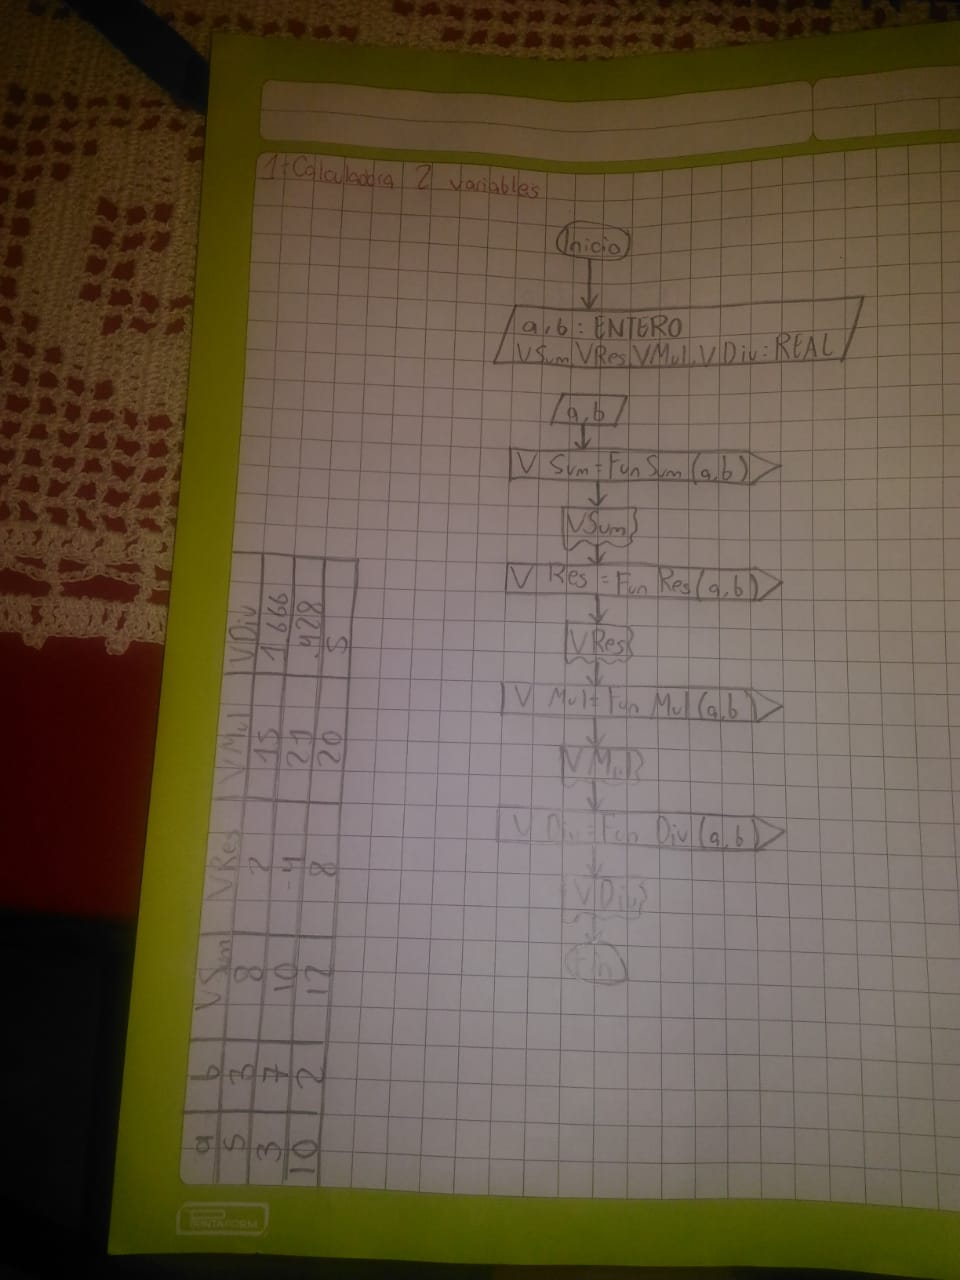 1-Calculadora 2 variables
Inicio
a,b: ENTERO
VSum VRes VMul, VDiv: REAL
a,b
V Sum = Fun Sum (a,b)
VSum
V Res = Fun Res (a,b)
VRes
V Mul = Fun Mul (a,b)
VMul
V Div = Fun Div (a,b)
VDiv
Fin
a b VSum VRes VMul VDiv
5 3 8 2 15 1.666
3 7 10 -4 21 .428
10 2 12 8 20 5